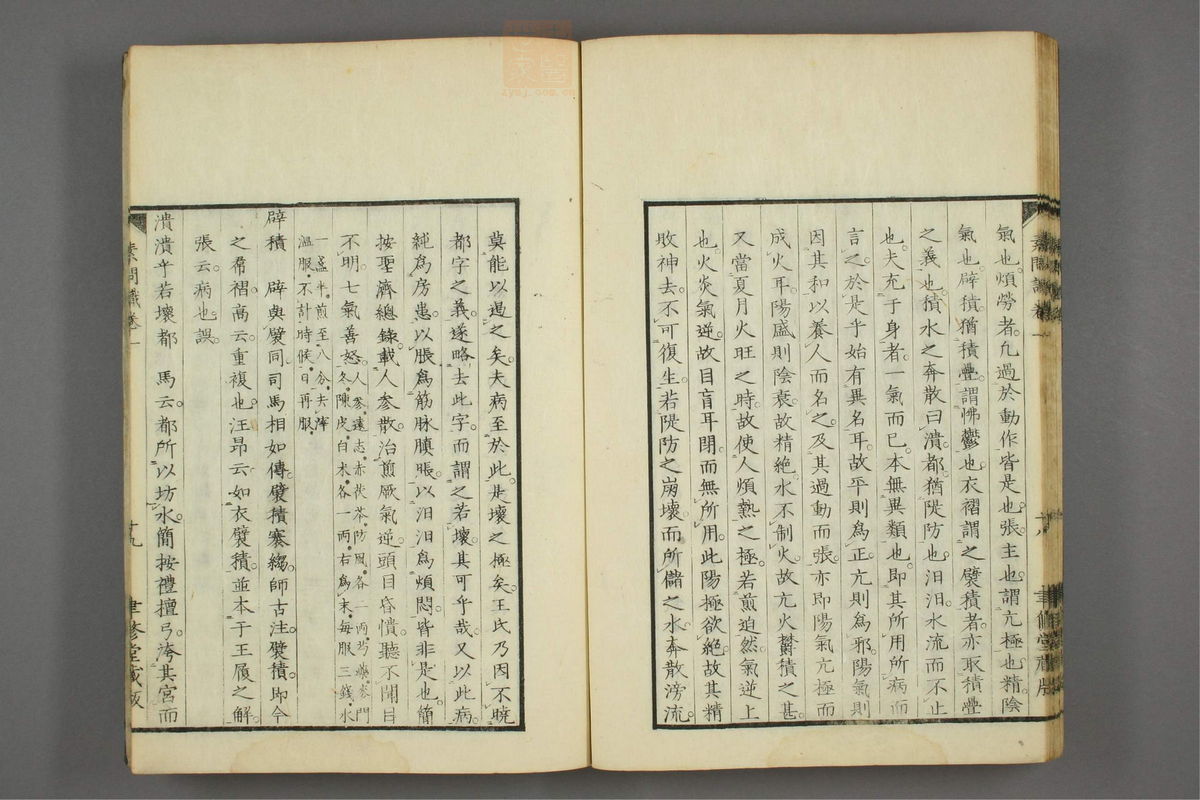 氣也煩勞者凢過於動作皆是也張主也謂亢極也精陰
氣也辟積猶積疊謂怫鬱也衣褶謂之襞積者亦取積疊
之義也積水之奔散曰潰都猶隄防也汨汨水流而不止
也夫充于身者一氣而已本無異類也即其所用所病而
言之於是乎始有異名耳故平則為正亢則為邪陽氣則
因其和以養人而名之及其過動而張亦即陽氣亢極而
成火耳陽盛則陰衰故精絶水不制火故亢火鬱積之甚
又當夏月火旺之時故使人煩熱之極若煎迫然氣逆上
也火炎氣逆故目盲耳閉而無所用此陽極欲絶故其精
敗神去不可復生若隄防之崩壞而所儲之水奔散滂流
莫能以遏之矣夫病至於此是壞之極矣王氏乃因不曉
都字之義遂略去此字而謂之若壞其可乎哉又以此病
純為房患以脹為筋脉䐜脹以汨汨為煩悶皆非是也簡
按聖濟總錄載人參散治煎厥氣逆頭目昏憒聽不聞目
不明七氣善怒人參遠志赤茯苓防風各一兩芍藥麥門
冬陳皮白朮各一兩右為末每服三錢水
一盞半煎至八分去滓
溫服不計時候日再服
辟積 辟與襞同司馬相如傳襞積褰縐師古注襞積即今
之帬褶高云重複也汪昂云如衣襞積並本于王履之解
張云病也誤
潰潰乎若壞都 馬云都所以坊水簡按禮檀弓洿其宮而
素問識卷一
十九
聿修堂藏版